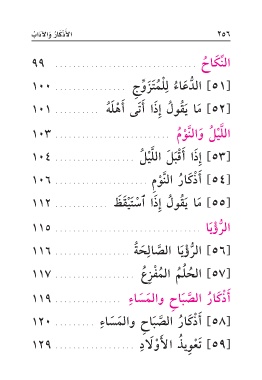 ٢٥٦ الأَذْكَارُ وَالآدَابُ
النِّكَاحُ ٩٩
[٥١] الدُّعَاءُ لِلْمُتَزَوِّجِ ١٠٠
[٥٢] مَا يَقُولُ إِذَا أَتَى أَهْلَهُ ١٠١
اللَّيْلُ وَالنَّوْمُ ١٠٣
[٥٣] إِذَا أَقْبَلَ اللَّيْلُ ١٠٤
[٥٤] أَذْكَارُ النَّوْمِ ١٠٦
[٥٥] مَا يَقُولُ إِذَا ٱسْتَيْقَظَ ١١٢
الرُّؤْيَا ١١٥
[٥٦] الرُّؤْيَا الصَّالِحَةُ ١١٦
[٥٧] الحُلُمُ المُفْزِعُ ١١٧
أَذْكَارُ الصَّبَاحِ وَالمَسَاءِ ١١٩
[٥٨] أَذْكَارُ الصَّبَاحِ وَالمَسَاءِ ١٢٠
[٥٩] تَعْوِيذُ الأَوْلَادِ ١٢٩